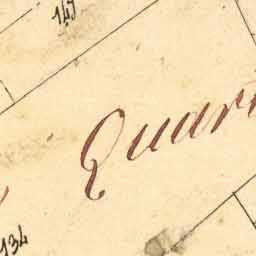 147
Quar
134